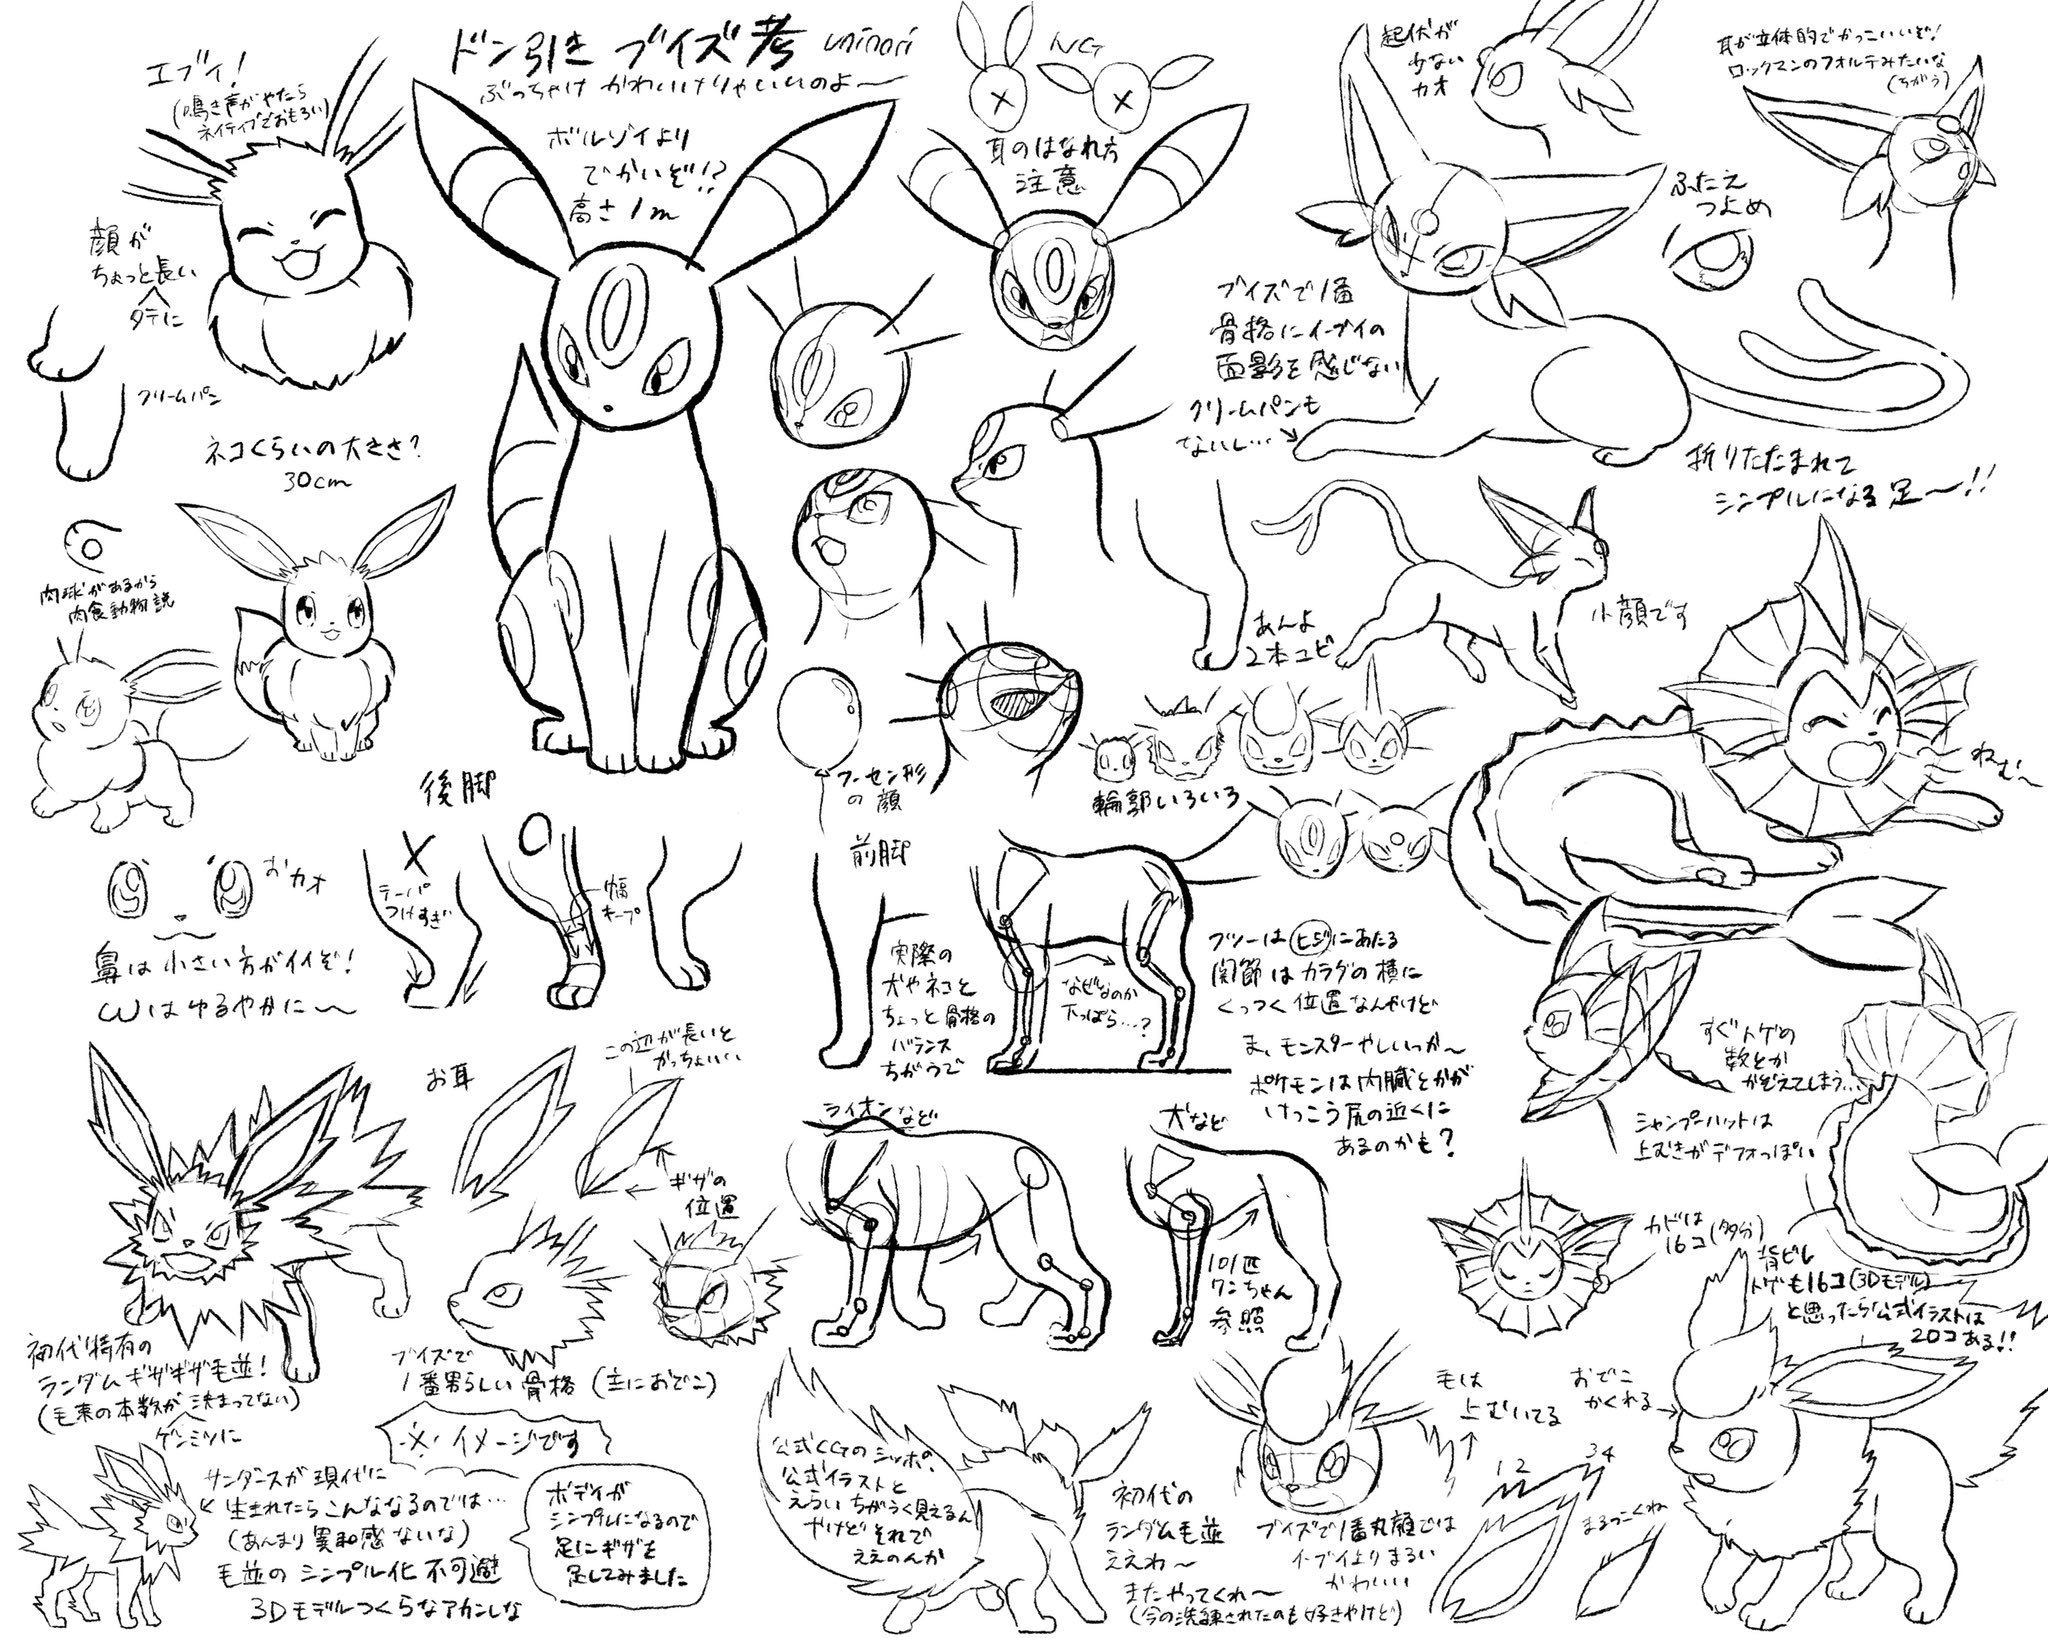 ドン引き ブイズ考 uninori
ぶっちゃけ かわいけりゃいいのよ〜
エブイ!
(鳴き声がやたら
ネイティブでおもろい)
顔が
ちょっと長い
タテに
クリームパン
ネコくらいの大きさ?
30cm
肉球があるから
肉食動物説
おカオ
鼻は小さい方がイイぞ!
ωはゆるやかに〜
ボルゾイより
でかいぞ!?
高さ1m
NG
耳のはなれ方
注意
フーセン形
の顔
あんよ
2本ユビ
輪郭いろいろ
起伏が
少ない
カオ
耳が立体的でかっこいいぞ!
ロックマンのフォルテみたいな
(ちがう)
ふたえ
つよめ
ブイズで1番
骨格にイーブイの
面影を感じない
クリームパンも
ないし…
折りたたまれて
シンプルになる足〜!!
小顔です
ねむ〜
後脚
テーパー
つけすぎ
幅
キープ
前脚
実際の
犬やネコと
ちょっと骨格の
バランス
ちがうで
なぜなのか
下っぱら…?
フツーはヒジにあたる
関節はカラダの横に
くっつく位置なんやけど
ま、モンスターやしいっか〜
ポケモンは内臓とかが
けっこう尻の近くに
あるのかも?
ライオンなど
犬など
101匹
ワンちゃん
参照
お耳
この辺が長いと
かっちょいい
ギザの
位置
初代特有の
ランダムギザギザ毛並!
(毛束の本数が決まってない)
ゲンミツに
ブイズで
1番男らしい骨格(主におでこ)
※イメージです
サンダースが現代に
生まれたらこんななるのでは…
(あんまり違和感ないな)
毛並のシンプル化不可避
3Dモデルつくらなアカンしな
ボディが
シンプルになるので
足にギザを
足してみました
すぐトゲの
数とか
かぞえてしまう…
シャンプーハットは
上むきがデフォっぽい
カドは
16コ(多分)
背ビレ
トゲも16コ(3Dモデル)
と思ったら公式イラストは
20コある!!
公式CGのシッポの、
公式イラストと
えらいちがうく見えるん
やけどそれで
ええのんか
初代の
ランダム毛並
ええわ〜
またやってくれ〜
(今の洗練されたのも好きやけど)
ブイズで1番丸顔では
イーブイよりまるい
かわいい
毛は
上むいてる
おでこ
かくれる
12
34
まるっこくね